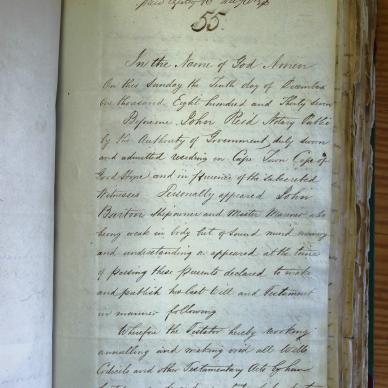 55.
In the Name of God Amen
On this Sunday the Tenth day of December
One thousand Eight hundred and Thirty Seven
Before me John Reid Notary Public
by the Authority of Government, duly sworn
and admitted residing in Cape Town Cape of
Good Hope and in presence of the subscribed
Witnesses Personally appeared John
Barton Shipowner and Master Mariner who
being weak in body but of sound mind memory
and understanding as appeared at the time
of passing these presents declared to make
and publish his last Will and Testament
in manner following
Wherefore the Testator hereby revoking
annulling and making void all Wills
Codicils and other Testamentary Acts by him